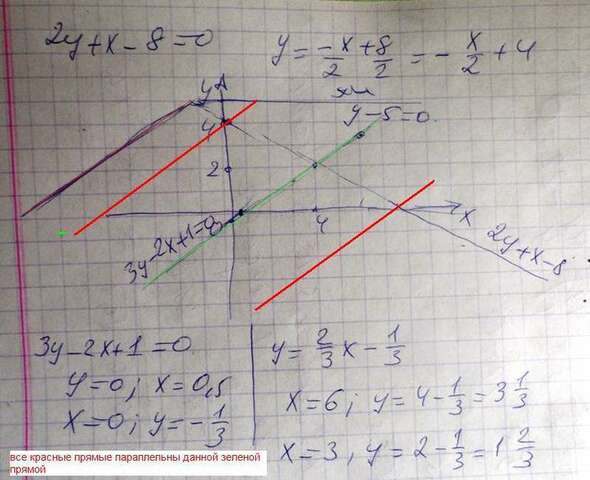 2y+x-8=0
y = -x/2 + 8/2 = -x/2 + 4
y
4
y-5=0
2
3y-2x+1=0
4
x
2y+x-8
3y-2x+1=0
y=0; x=0,5
x=0; y=-1/3
y = 2/3 x - 1/3
x=6; y=4-1/3=3 1/3
x=3, y=2-1/3=1 2/3
все красные прямые параллельны данной зеленой
прямой